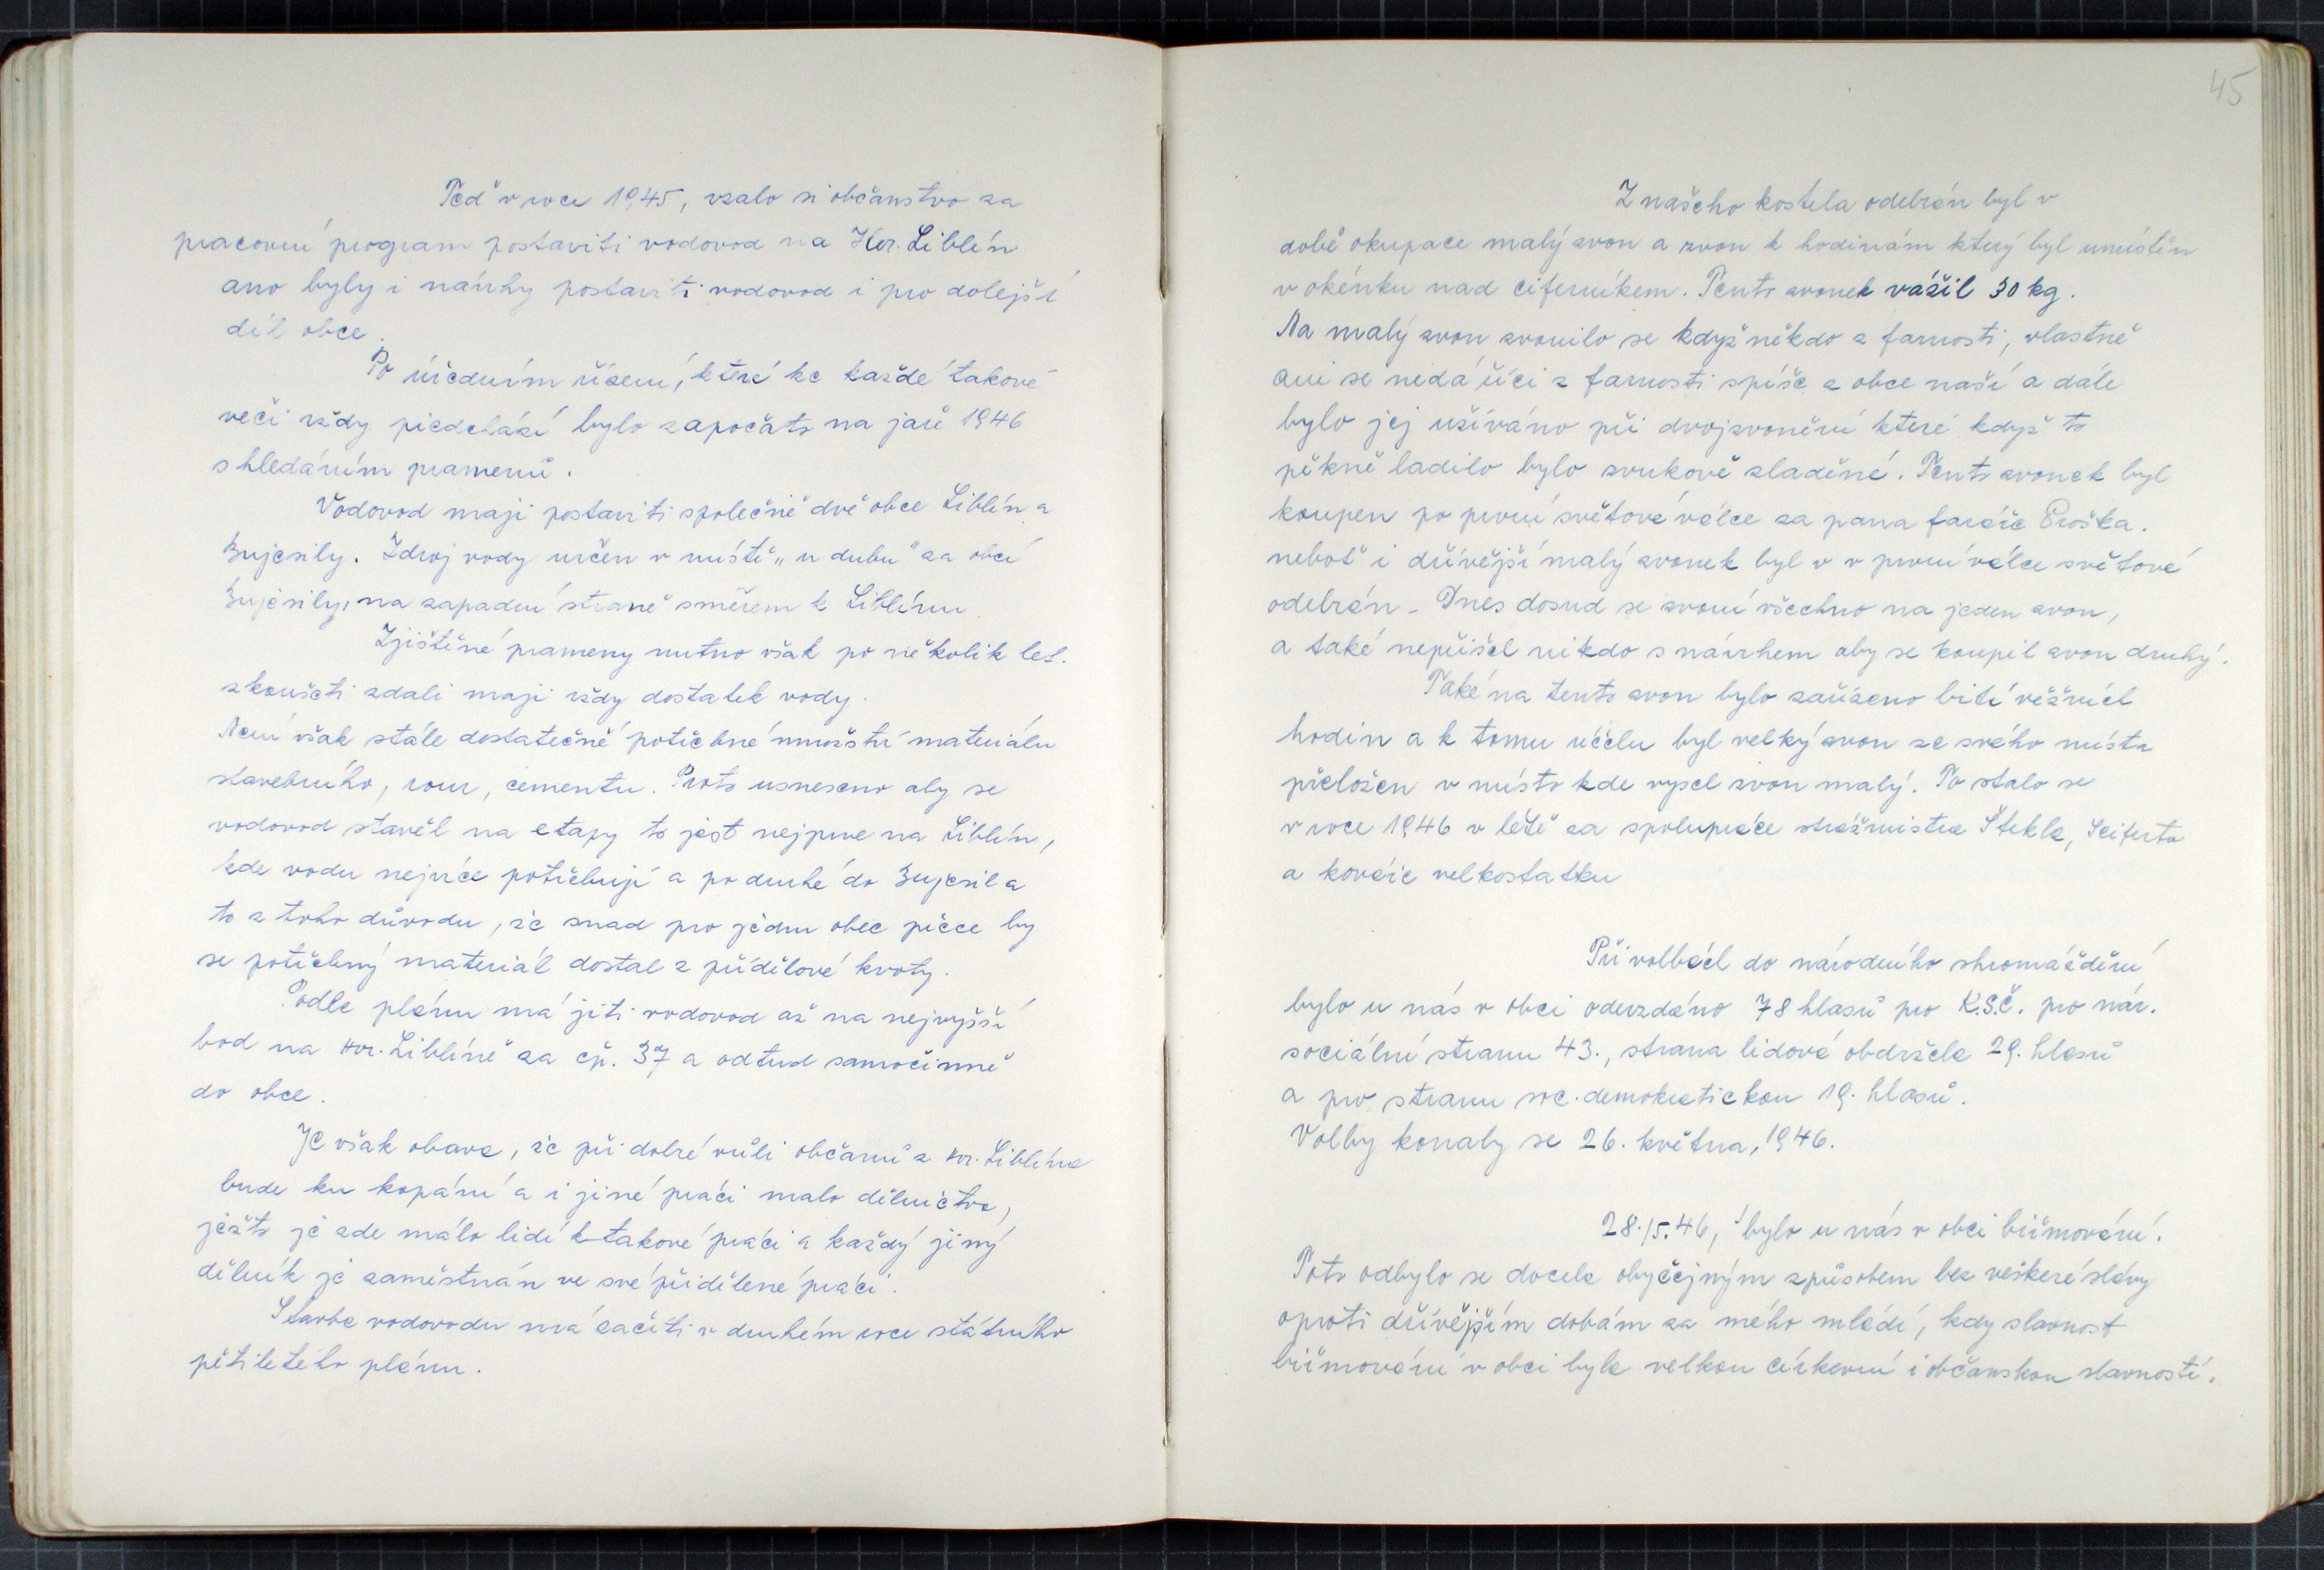 Teď v roce 1945, vzalo si občanstvo za
pracovní program postaviti vodovod na Hor. Liblín
ano byly i návrhy postaviti vodovod i pro dolejší
díl obce.
Po úředním řízení, které ke každé takové
věci vždy předchází bylo započato na jaře 1946
s hledáním pramenů.
Vodovod maji postaviti společně dvě obce Liblín a
Bujesily. Zdroj vody určen v místě „u dubu" za obcí
Bujesily, na zapadní straně směrem k Liblínu
Zjištěné prameny nutno však po několik let.
zkoušeti zdali maji vždy dostatek vody.
Není však stále dostatečné potřebné množství materiálu
stavebního, rour, cementu. Proto usneseno aby se
vodovod stavěl na etapy to jest nejprve na Liblín,
kde vodu nejvíce potřebují a po druhé do Bujesil a
to z toho důvodu, že snad pro jednu obec přece by
se potřebný materiál dostal z přídělové kvoty.
Podle plánu má jíti vodovod až na nejvyšší
bod na Hor. Liblíně za čp. 37 a odtud samočinně
do obce.
Je však obava, že při dobré vůli občanů z Hor. Liblína
bude ku kopání a i jiné práci malo dělnictva,
ježto je zde málo lidí k takové práci a každý jiný
dělník je zaměstnán ve své přidělené práci.
Stavba vodovodu má začíti v druhém roce státního
pětiletého plánu.
45
Z našeho kostela odebrán byl v
době okupace malý zvon a zvon k hodinám který byl umístěn
v okénku nad ciferníkem. Tento zvonek vážil 30 kg.
Na malý zvon zvonilo se když někdo z farnosti, vlastně
ani se nedá říci z farnosti spíše z obce naší a dále
bylo jej užíváno při dvojzvonění které když to
pěkně ladilo bylo zvukově sladěné. Tento zvonek byl
koupen po první světové válce za pana faráře Proška.
neboť i dřívější malý zvonek byl v v první válce světové
odebrán - Dnes dosud se zvoní všechno na jeden zvon,
a také nepřišel nikdo s návrhem aby se koupil zvon druhý.
Také na tento zvon bylo zařízeno bití věžních
hodin a k tomu účelu byl velký zvon ze svého místa
přeložen v místo kde vysel zvon malý. To stalo se
v roce 1946 v létě za spolupráce strážmistra Štekla, Seiferta
a kováře velkostatku
Při volbách do národního shromáždění
bylo u nás v obci odevzdáno 78 hlasů pro K.S.Č. pro nár.
sociální stranu 43., strana lidová obdržela 29. hlasů
a pro stranu soc. demokratickou 19. hlasů.
Volby konaly se 26. května, 1946.
28./5.46, bylo u nás v obci biřmování.
Toto odbylo se docela obyčejným způsobem bez veškeré slávy
oproti dřívějším dobám za mého mládí, kdy slavnost
biřmování v obci byla velkou církevní i občanskou slavností.